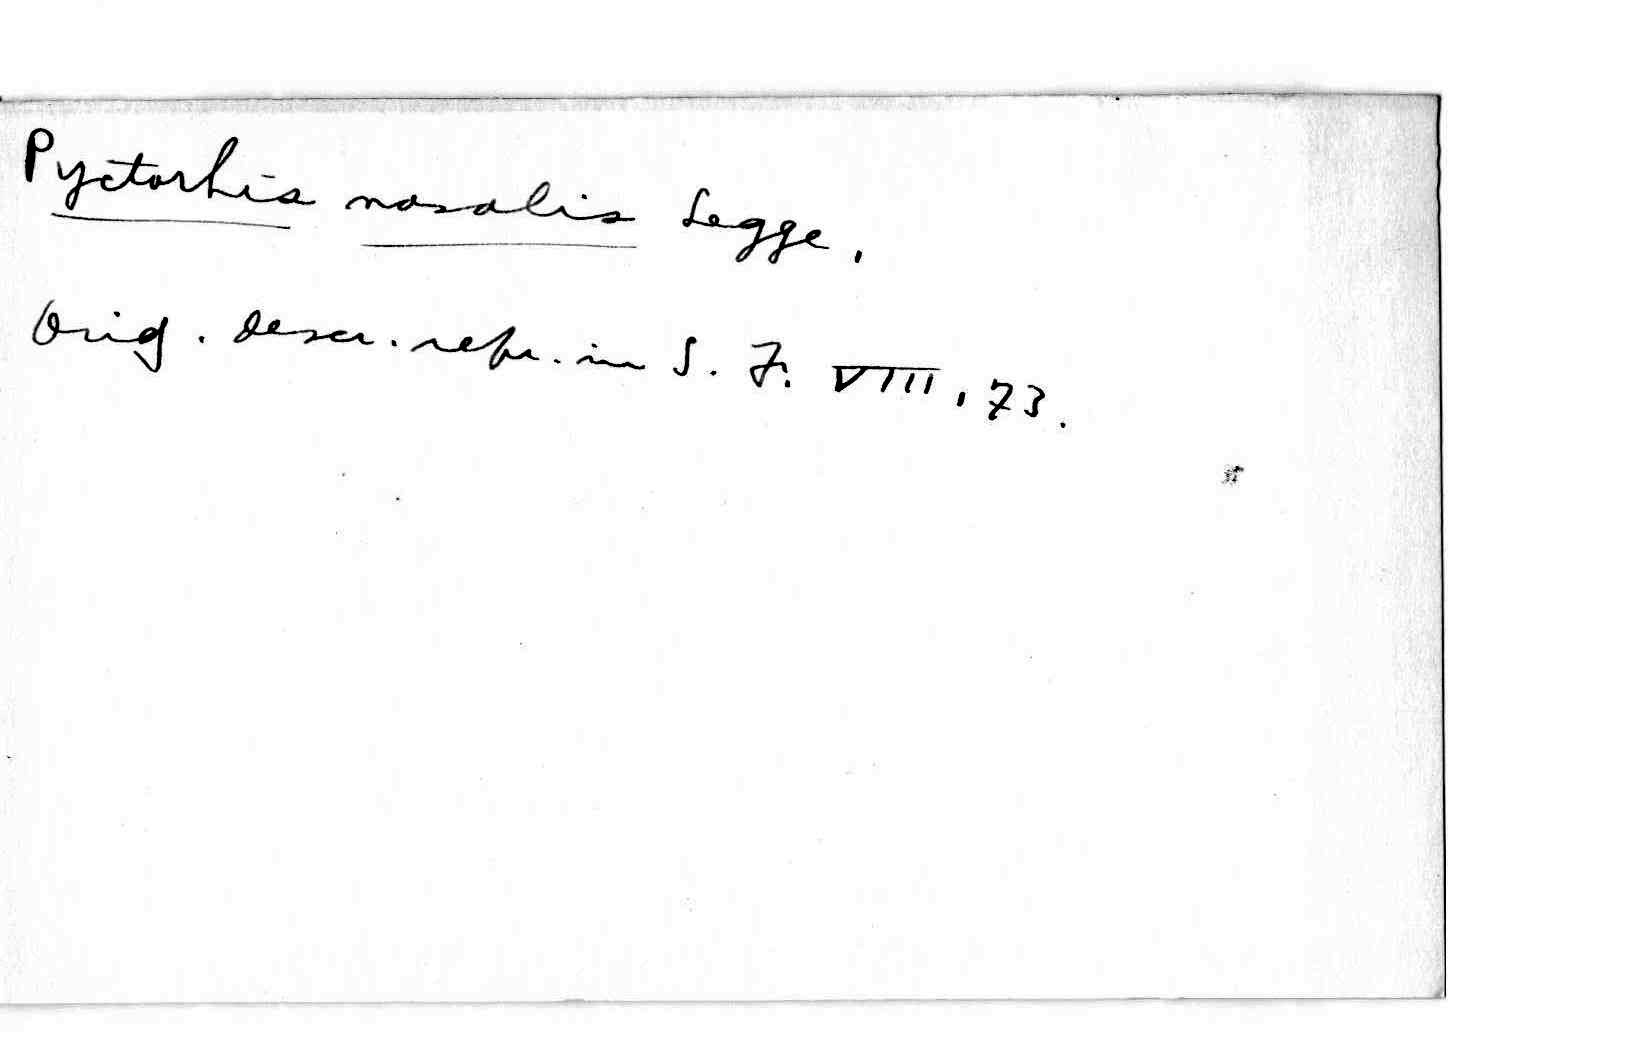 Pyctorhis nasalis Legge.
Orig. descr. repr. in S. F. VIII, 73.